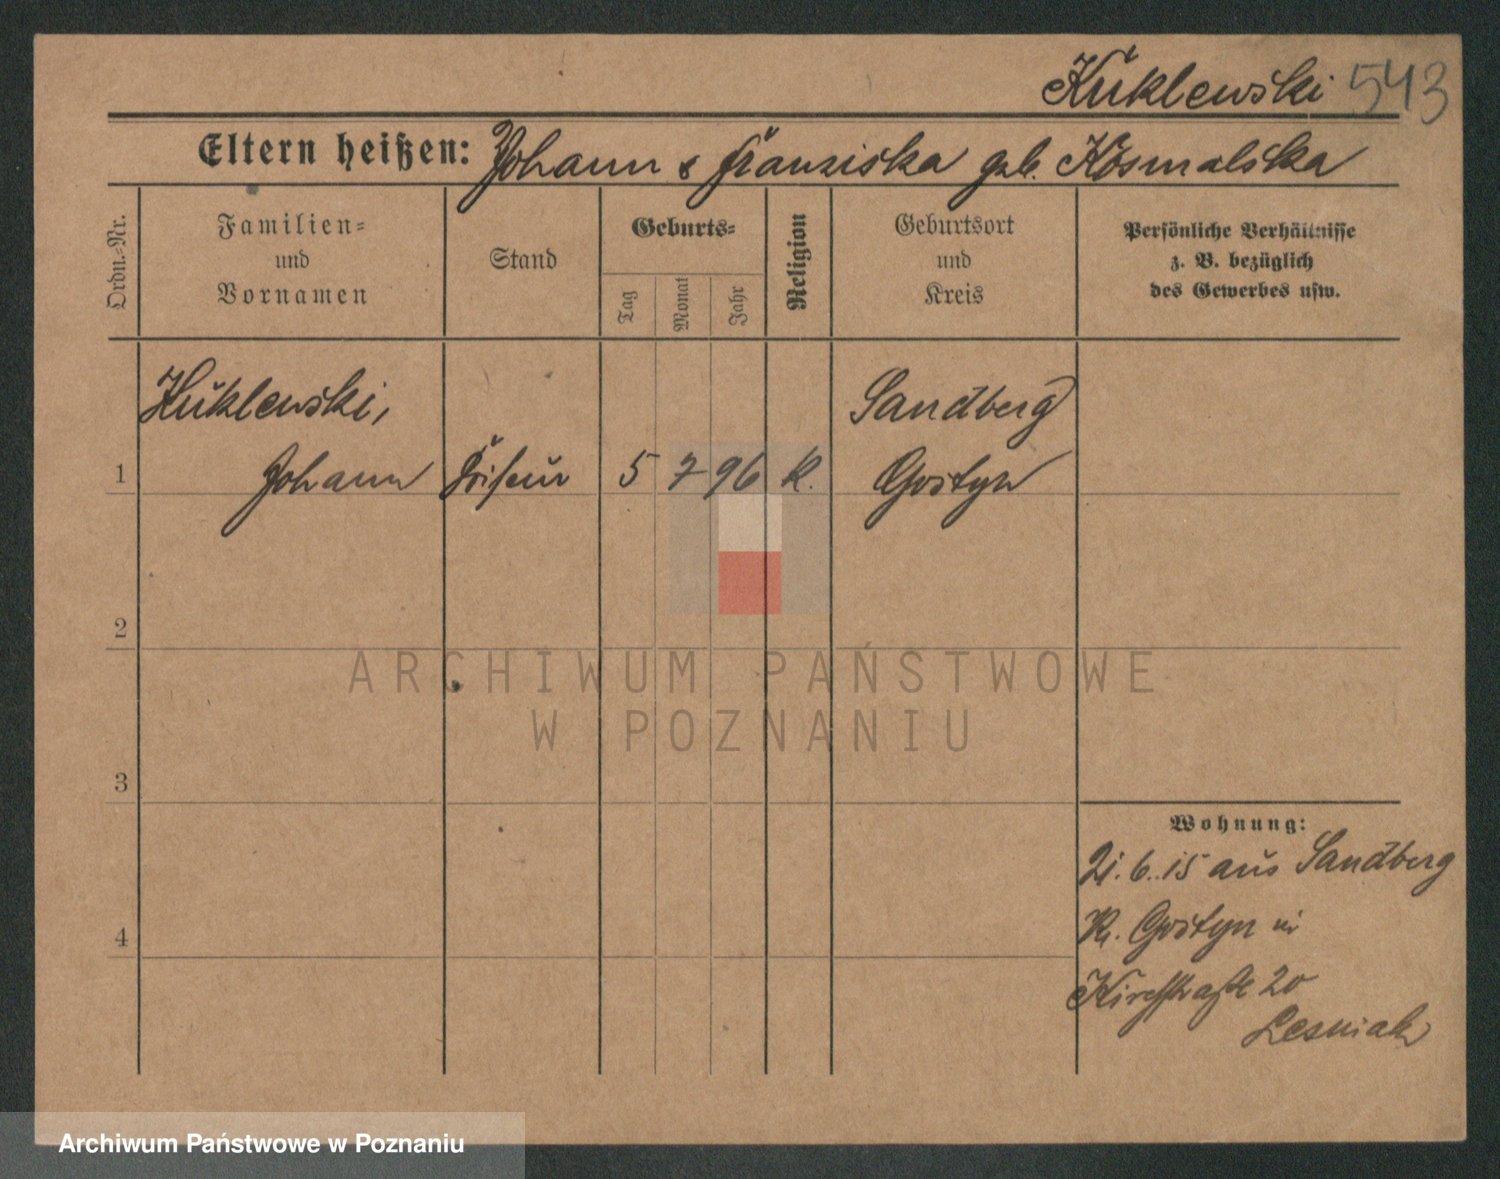 Kuklewski 543
Eltern heißen: Johann & Franziska geb. Kosmalska
Ordn.-Nr.
Familien-
und
Vornamen
Stand
Geburts-
Tag
Monat
Jahr
Religion
Geburtsort
und
Kreis
Persönliche Verhältnisse
z. B. bezüglich
des Gewerbes usw.
Kuklewski,
1 Johann Friseur 5 7 96 K. Sandberg
Gostyn
2
3
4
Wohnung:
21.6.15 aus Sandberg
Kr. Gostyn in
Kirchstraße 20
Lesniak
ARCHIWUM PAŃSTWOWE
W POZNANIU
Archiwum Państwowe w Poznaniu